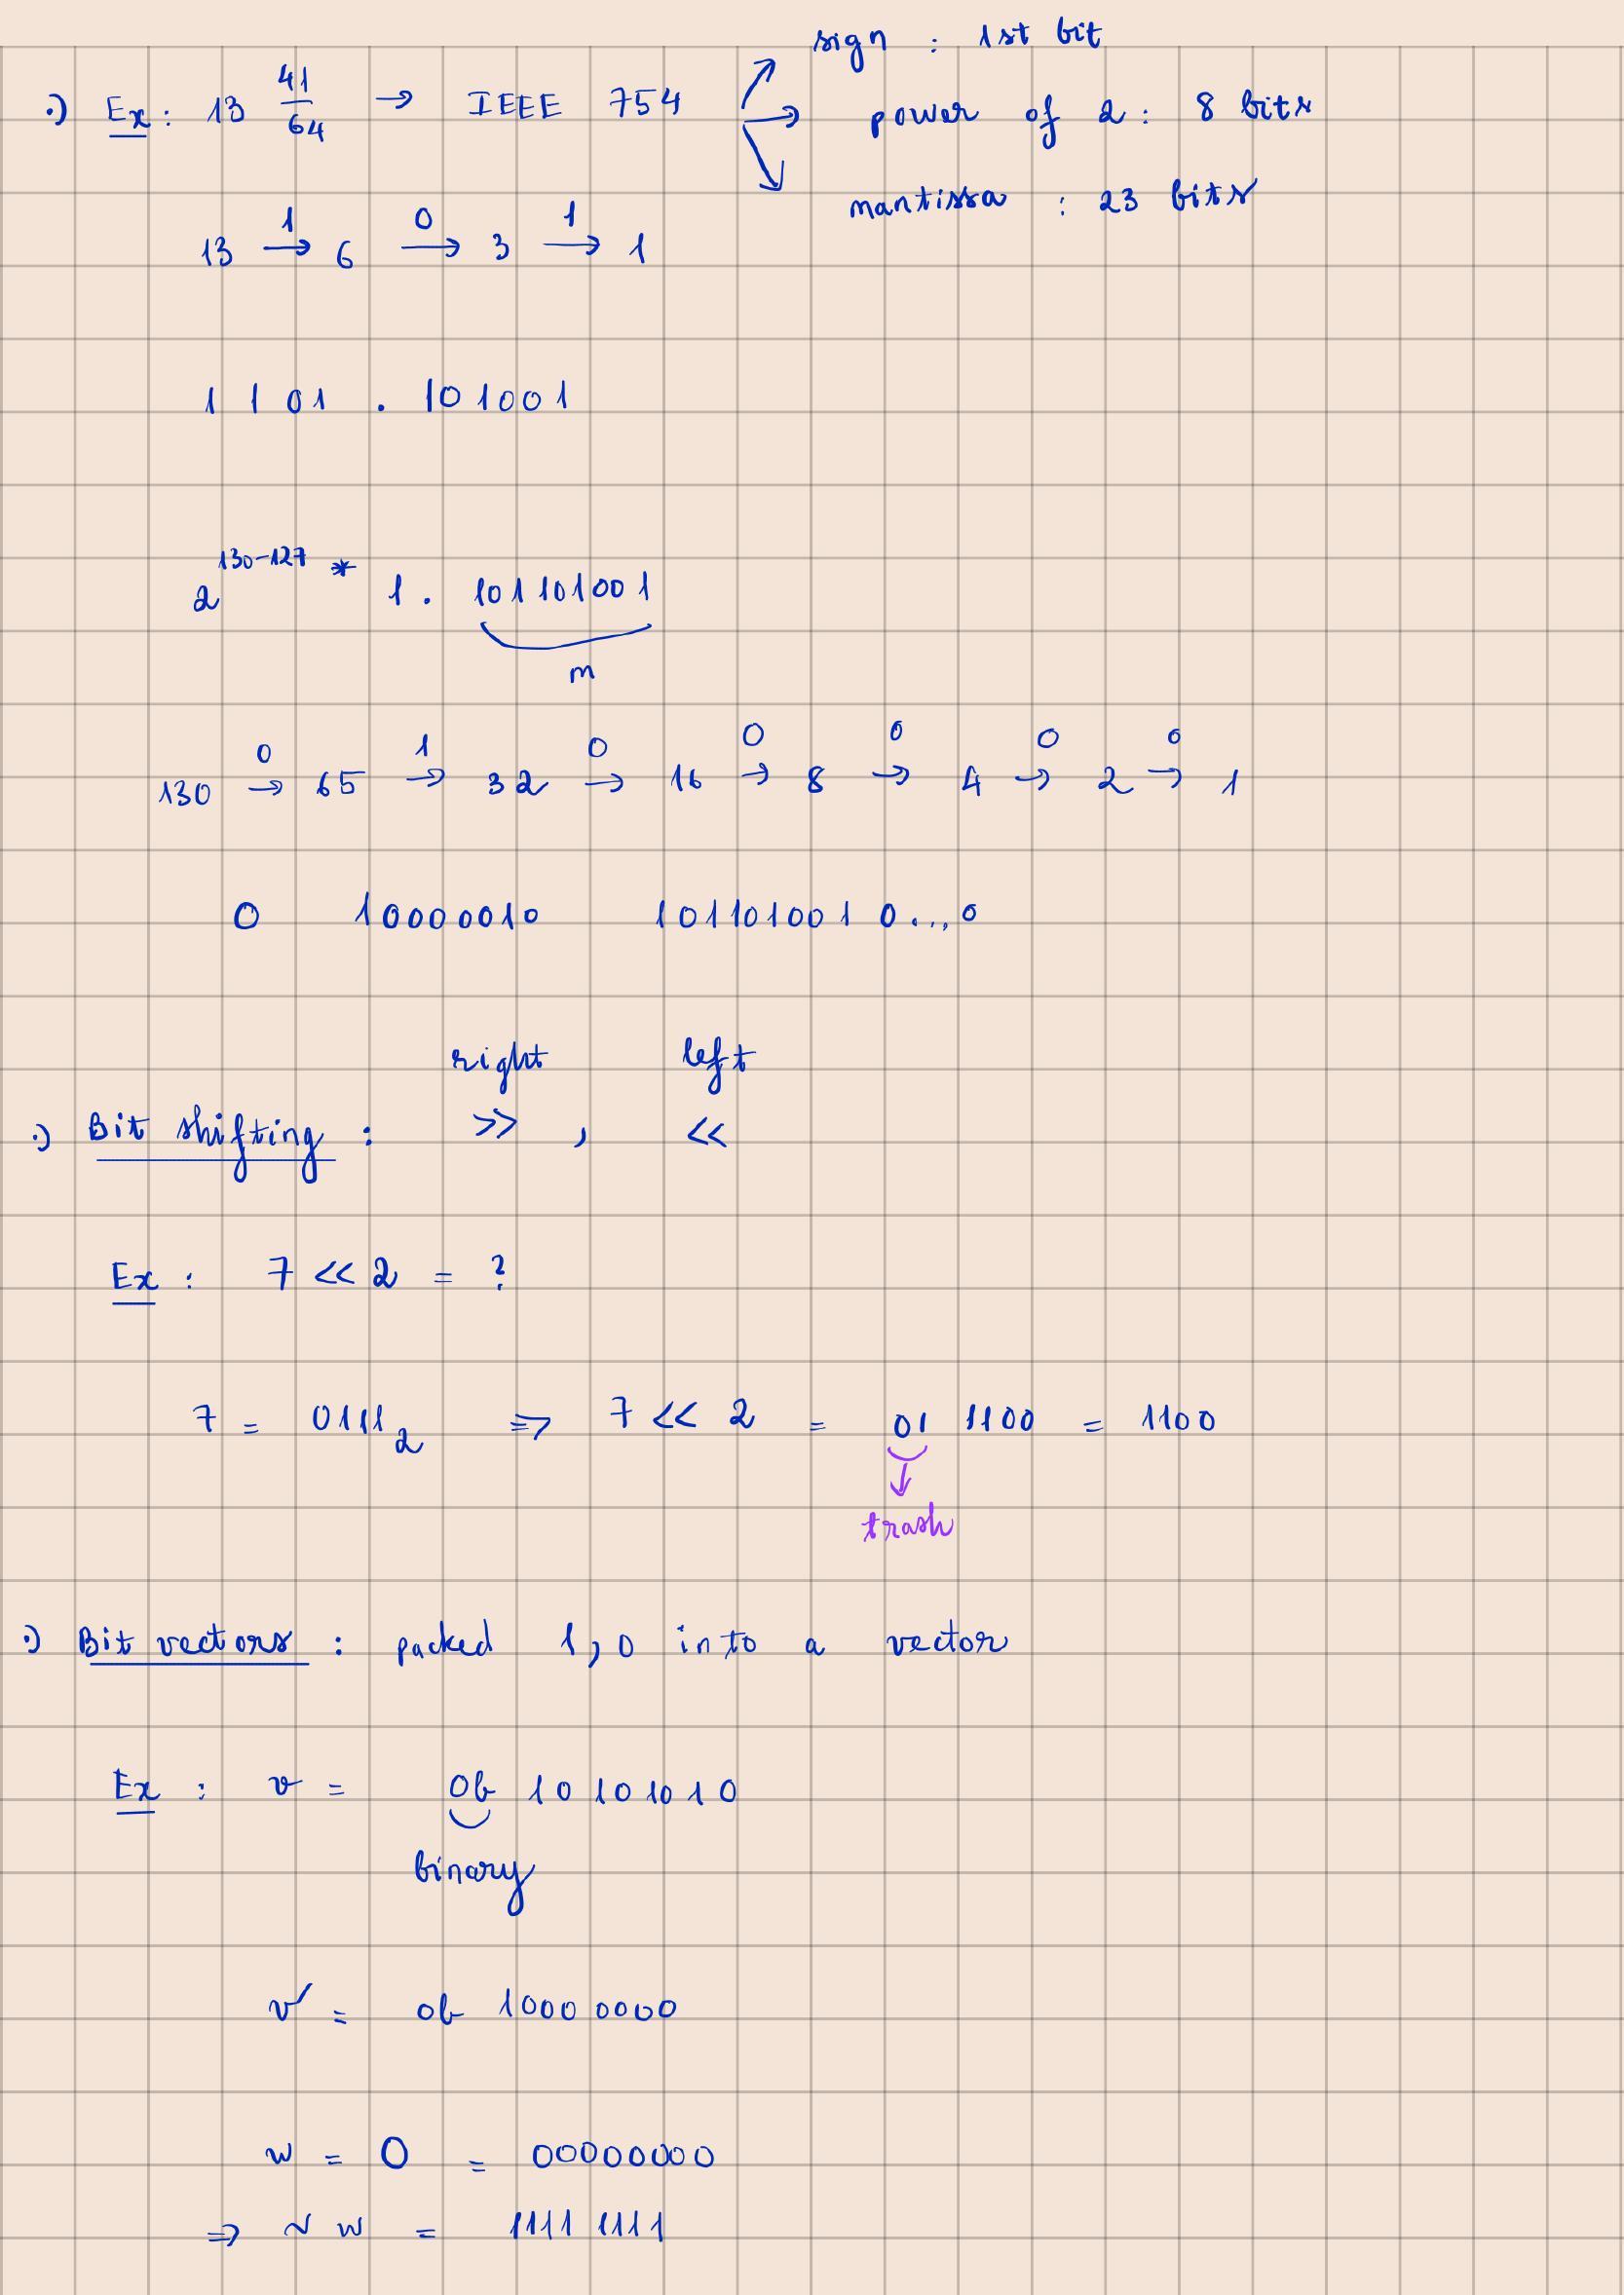 sign : 1st bit
·) Ex: 13 41/64 → IEEE 754 → power of 2: 8 bits
mantissa : 23 bits
13 →(1) 6 →(0) 3 →(1) 1
1101 . 101001
2^(130-127) * 1. 101101001
m
130 →(0) 65 →(1) 32 →(0) 16 →(0) 8 →(0) 4 →(0) 2 →(0) 1
0 10000010 101101001 0...0
right left
·) Bit shifting : >> , <<
Ex : 7 << 2 = ?
7 = 0111₂ ⇒ 7 << 2 = 01 1100 = 1100
trash
·) Bit vectors : packed 1,0 into a vector
Ex : v = 0b 10101010
binary
v' = 0b 1000 0000
w = 0 = 00000000
⇒ ~ w = 1111 1111